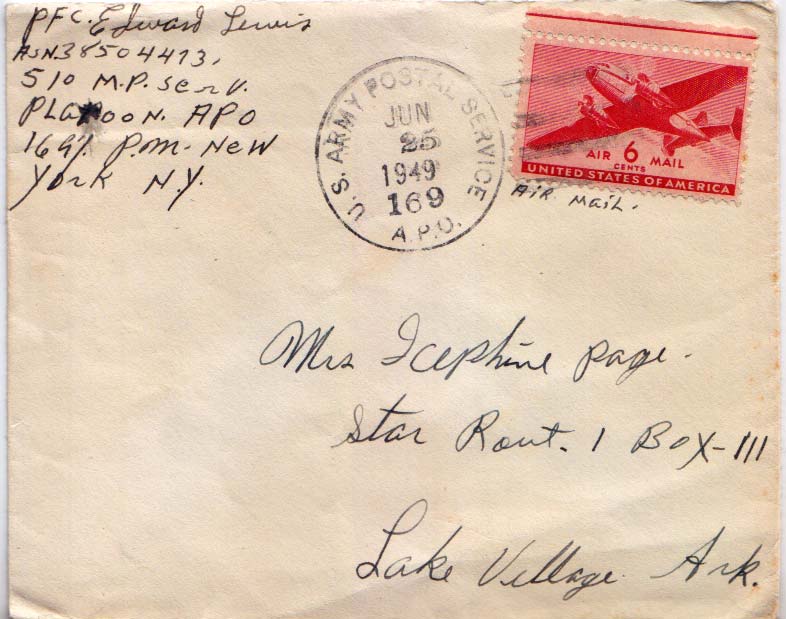 PFC. Edward Lewis
ASN.38504473.
510 M.P. Serv.
PLATOON. APO
169 % P.M. New
York N.Y.
U.S. ARMY POSTAL SERVICE
JUN
25
1949
169
A.P.O.
AIR 6 MAIL
CENTS
UNITED STATES OF AMERICA
Air Mail.
Mrs Icephine Page.
Star Rout. 1 Box-111
Lake Village Ark.